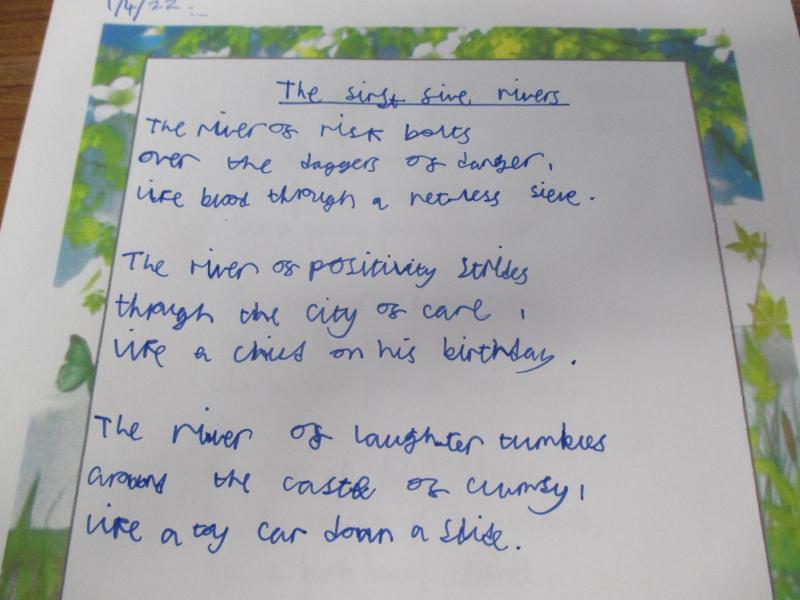 1/4/22
The first five rivers
The river of risk bolts
over the daggers of danger,
like blood through a netless sieve.
The river of positivity strides
through the city of care,
like a child on his birthday.
The river of laughter tumbles
around the castle of clumsy,
like a toy car down a slide.